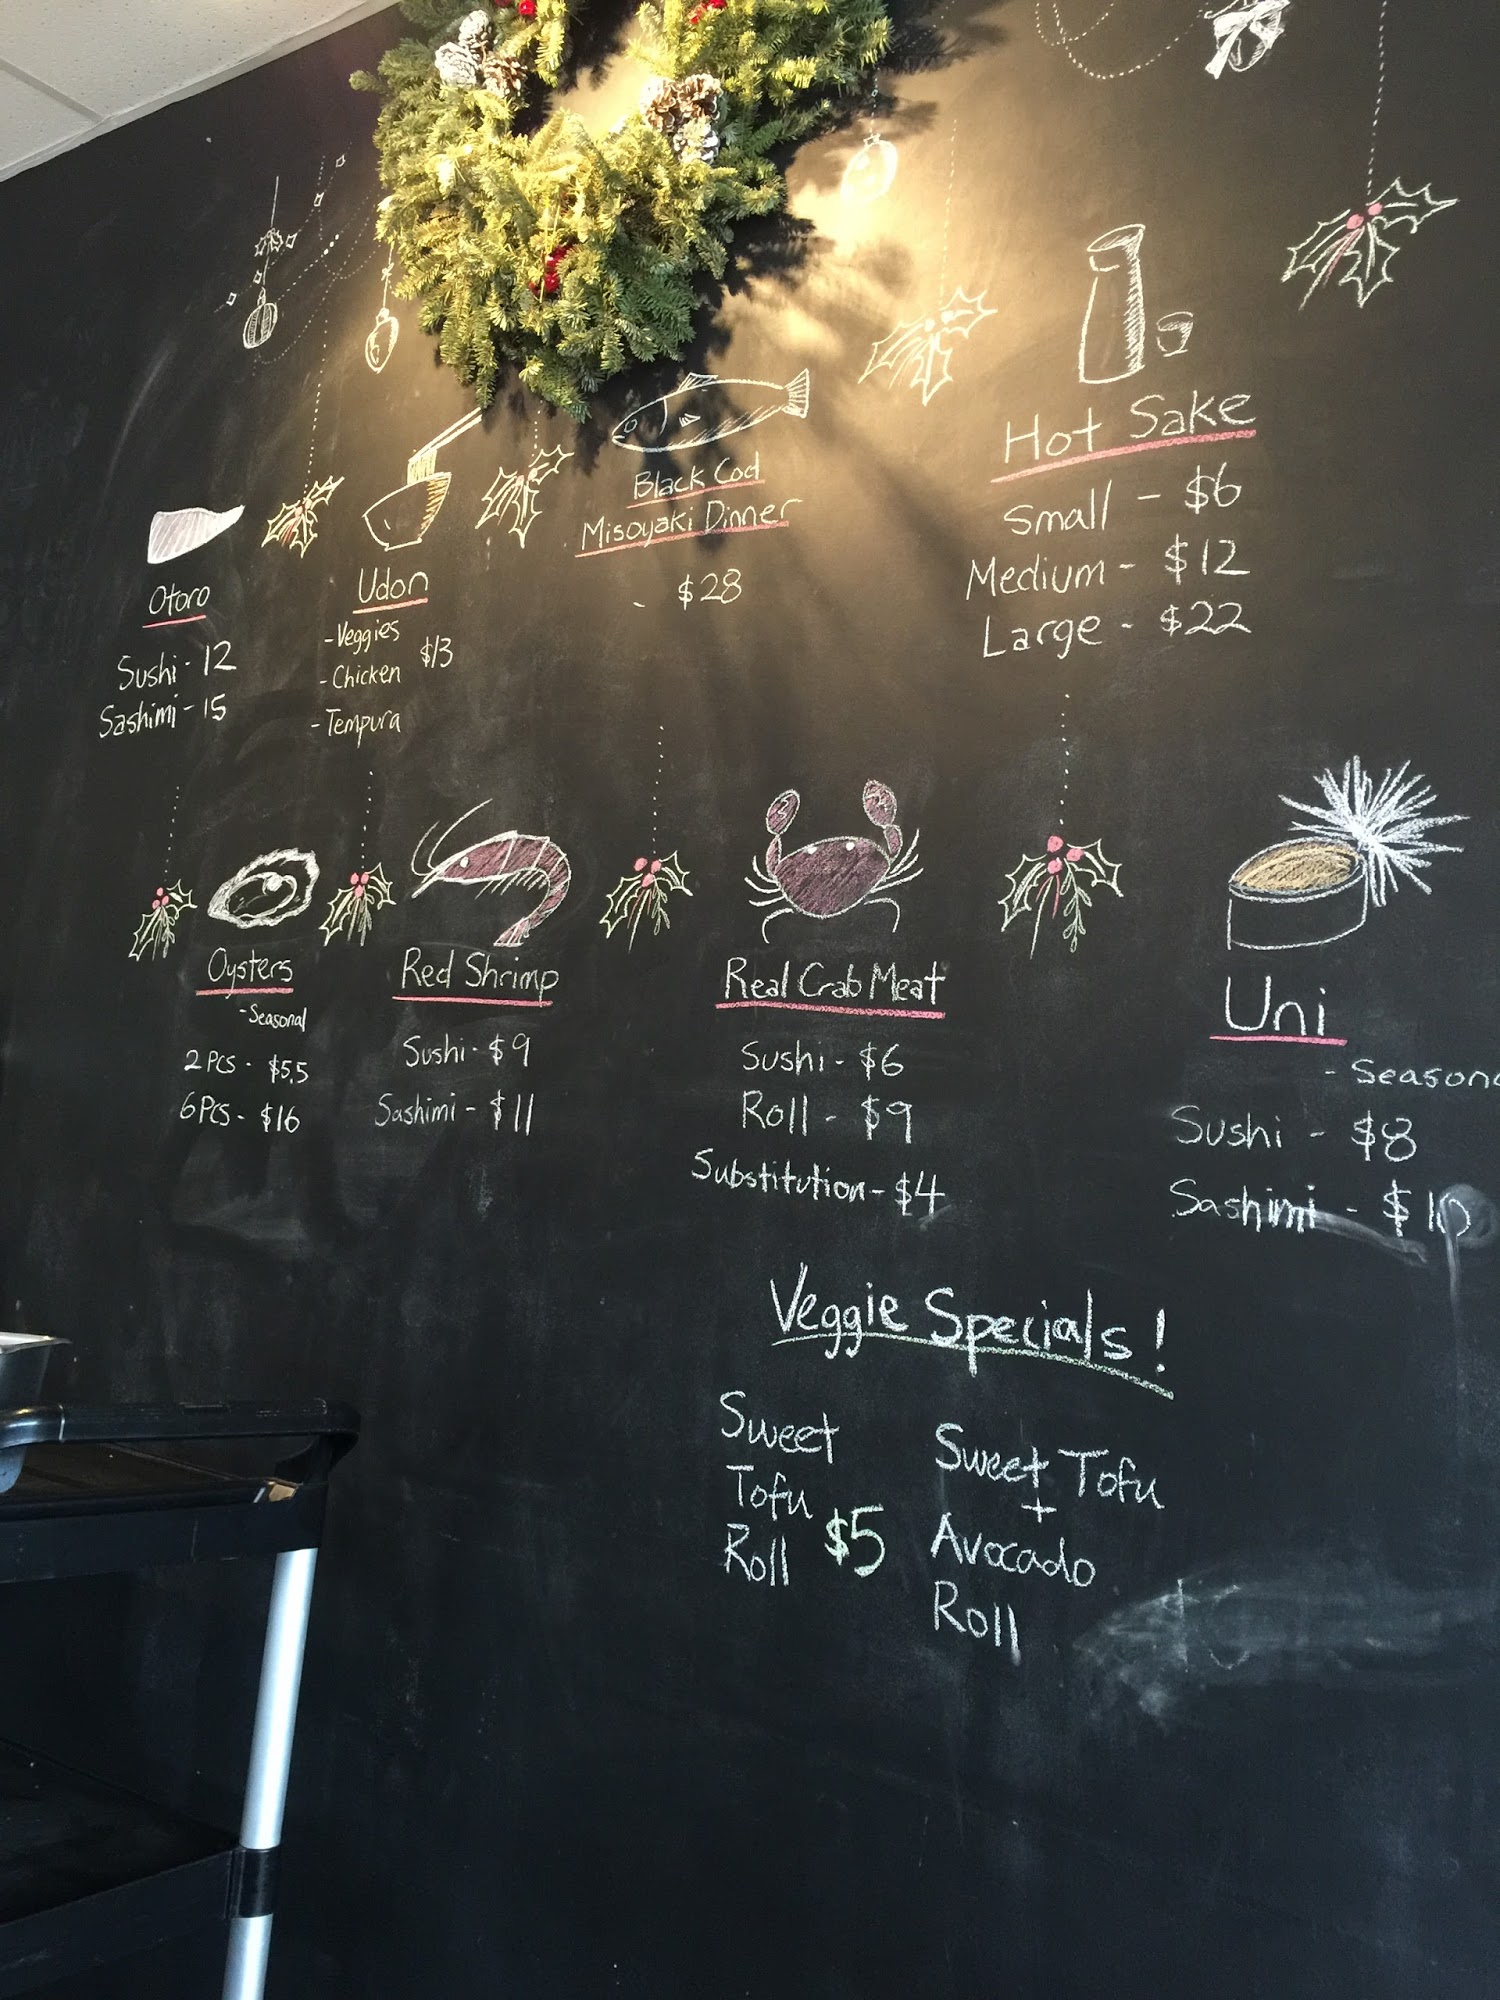 Otoro
Sushi - 12
Sashimi - 15
Udon
- Veggies
- Chicken $13
- Tempura
Black Cod
Misoyaki Dinner
- $28
Hot Sake
Small - $6
Medium - $12
Large - $22
Oysters
- Seasonal
2 PCS - $5.5
6 PCS - $16
Red Shrimp
Sushi - $9
Sashimi - $11
Real Crab Meat
Sushi - $6
Roll - $9
Substitution - $4
Uni
- Seasona
Sushi - $8
Sashimi - $10
Veggie Specials!
Sweet
Tofu
Roll $5
Sweet Tofu
+
Avocado
Roll